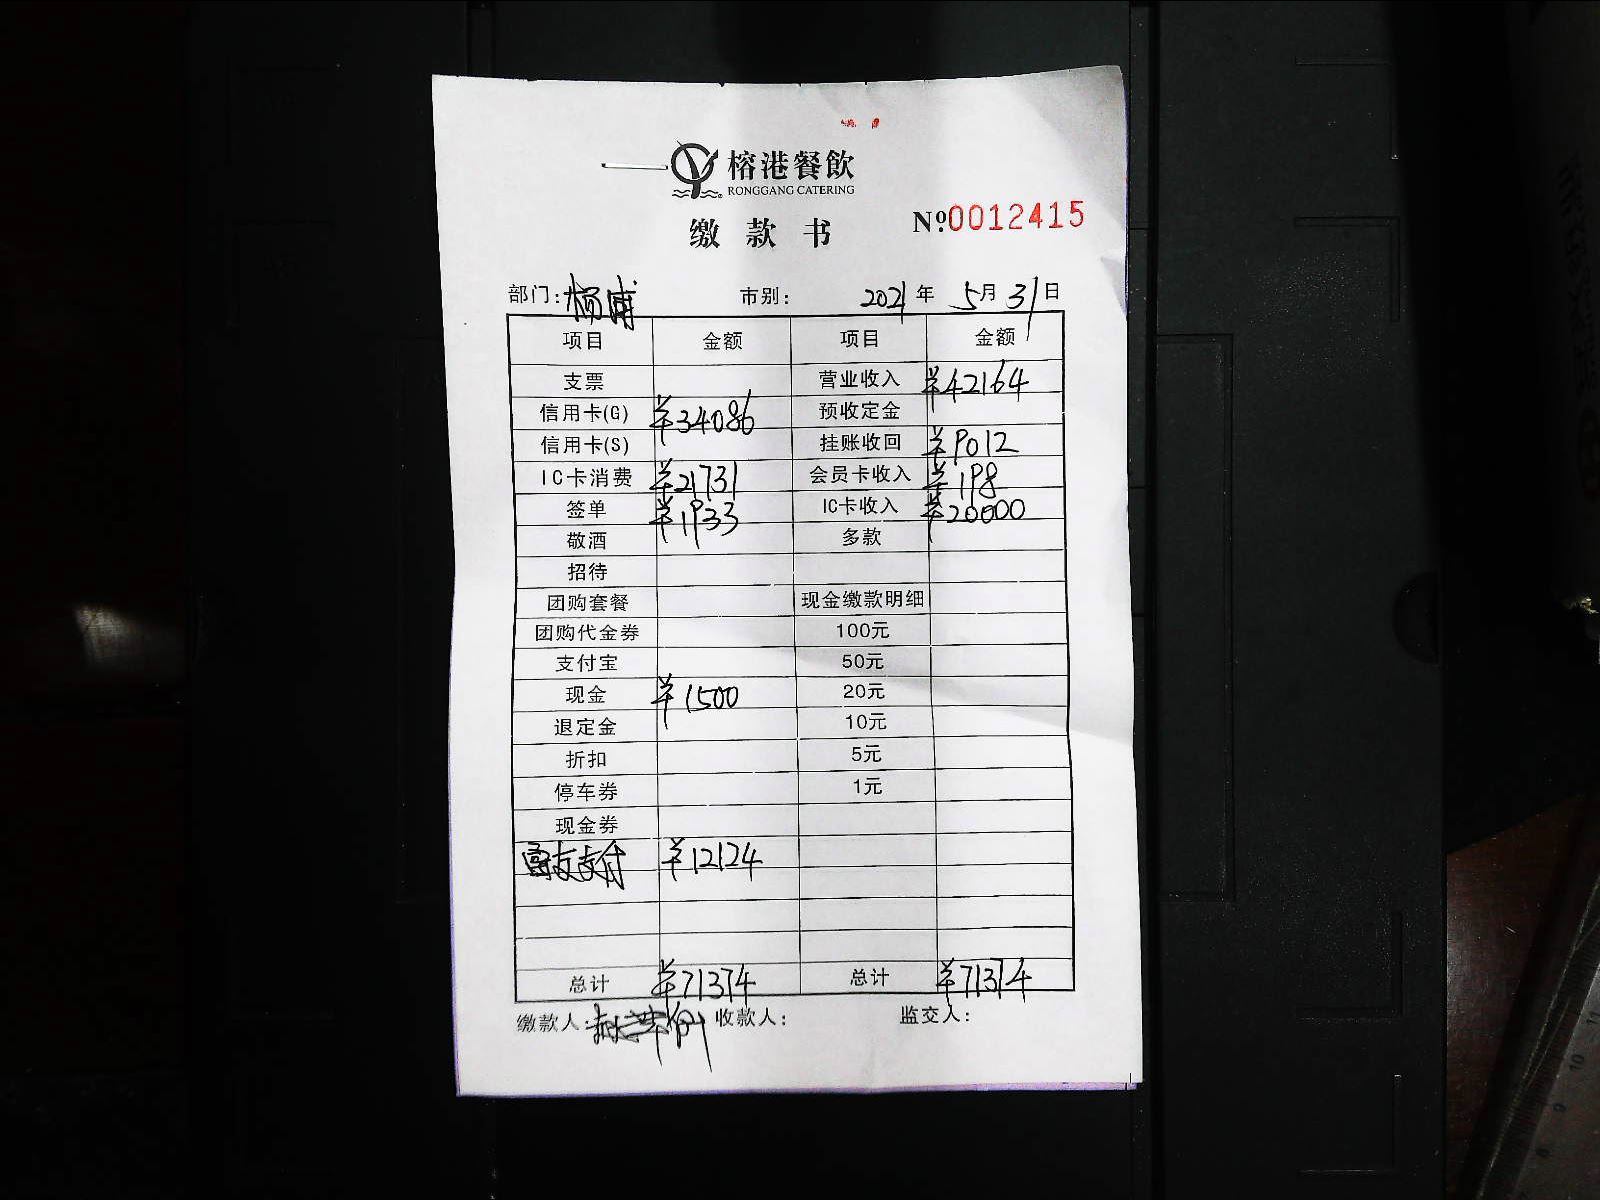 榕港餐飲
RONGGANG CATERING
缴款书
Nº.0012415
部门:杨浦 市别: 2021年 5月31日
项目 金额 项目 金额
支票 营业收入 ¥42164
信用卡(G) ¥34086 预收定金
信用卡(S) 挂账收回 ¥9012
IC卡消费 ¥21731 会员卡收入 ¥198
签单 ¥1933 IC卡收入 ¥20000
敬酒 多款
招待
团购套餐 现金缴款明细
团购代金券 100元
支付宝 50元
现金 ¥1500 20元
退定金 10元
折扣 5元
停车券 1元
现金券
支付 ¥12124
总计 ¥71374 总计 ¥71374
缴款人: 收款人: 监交人: